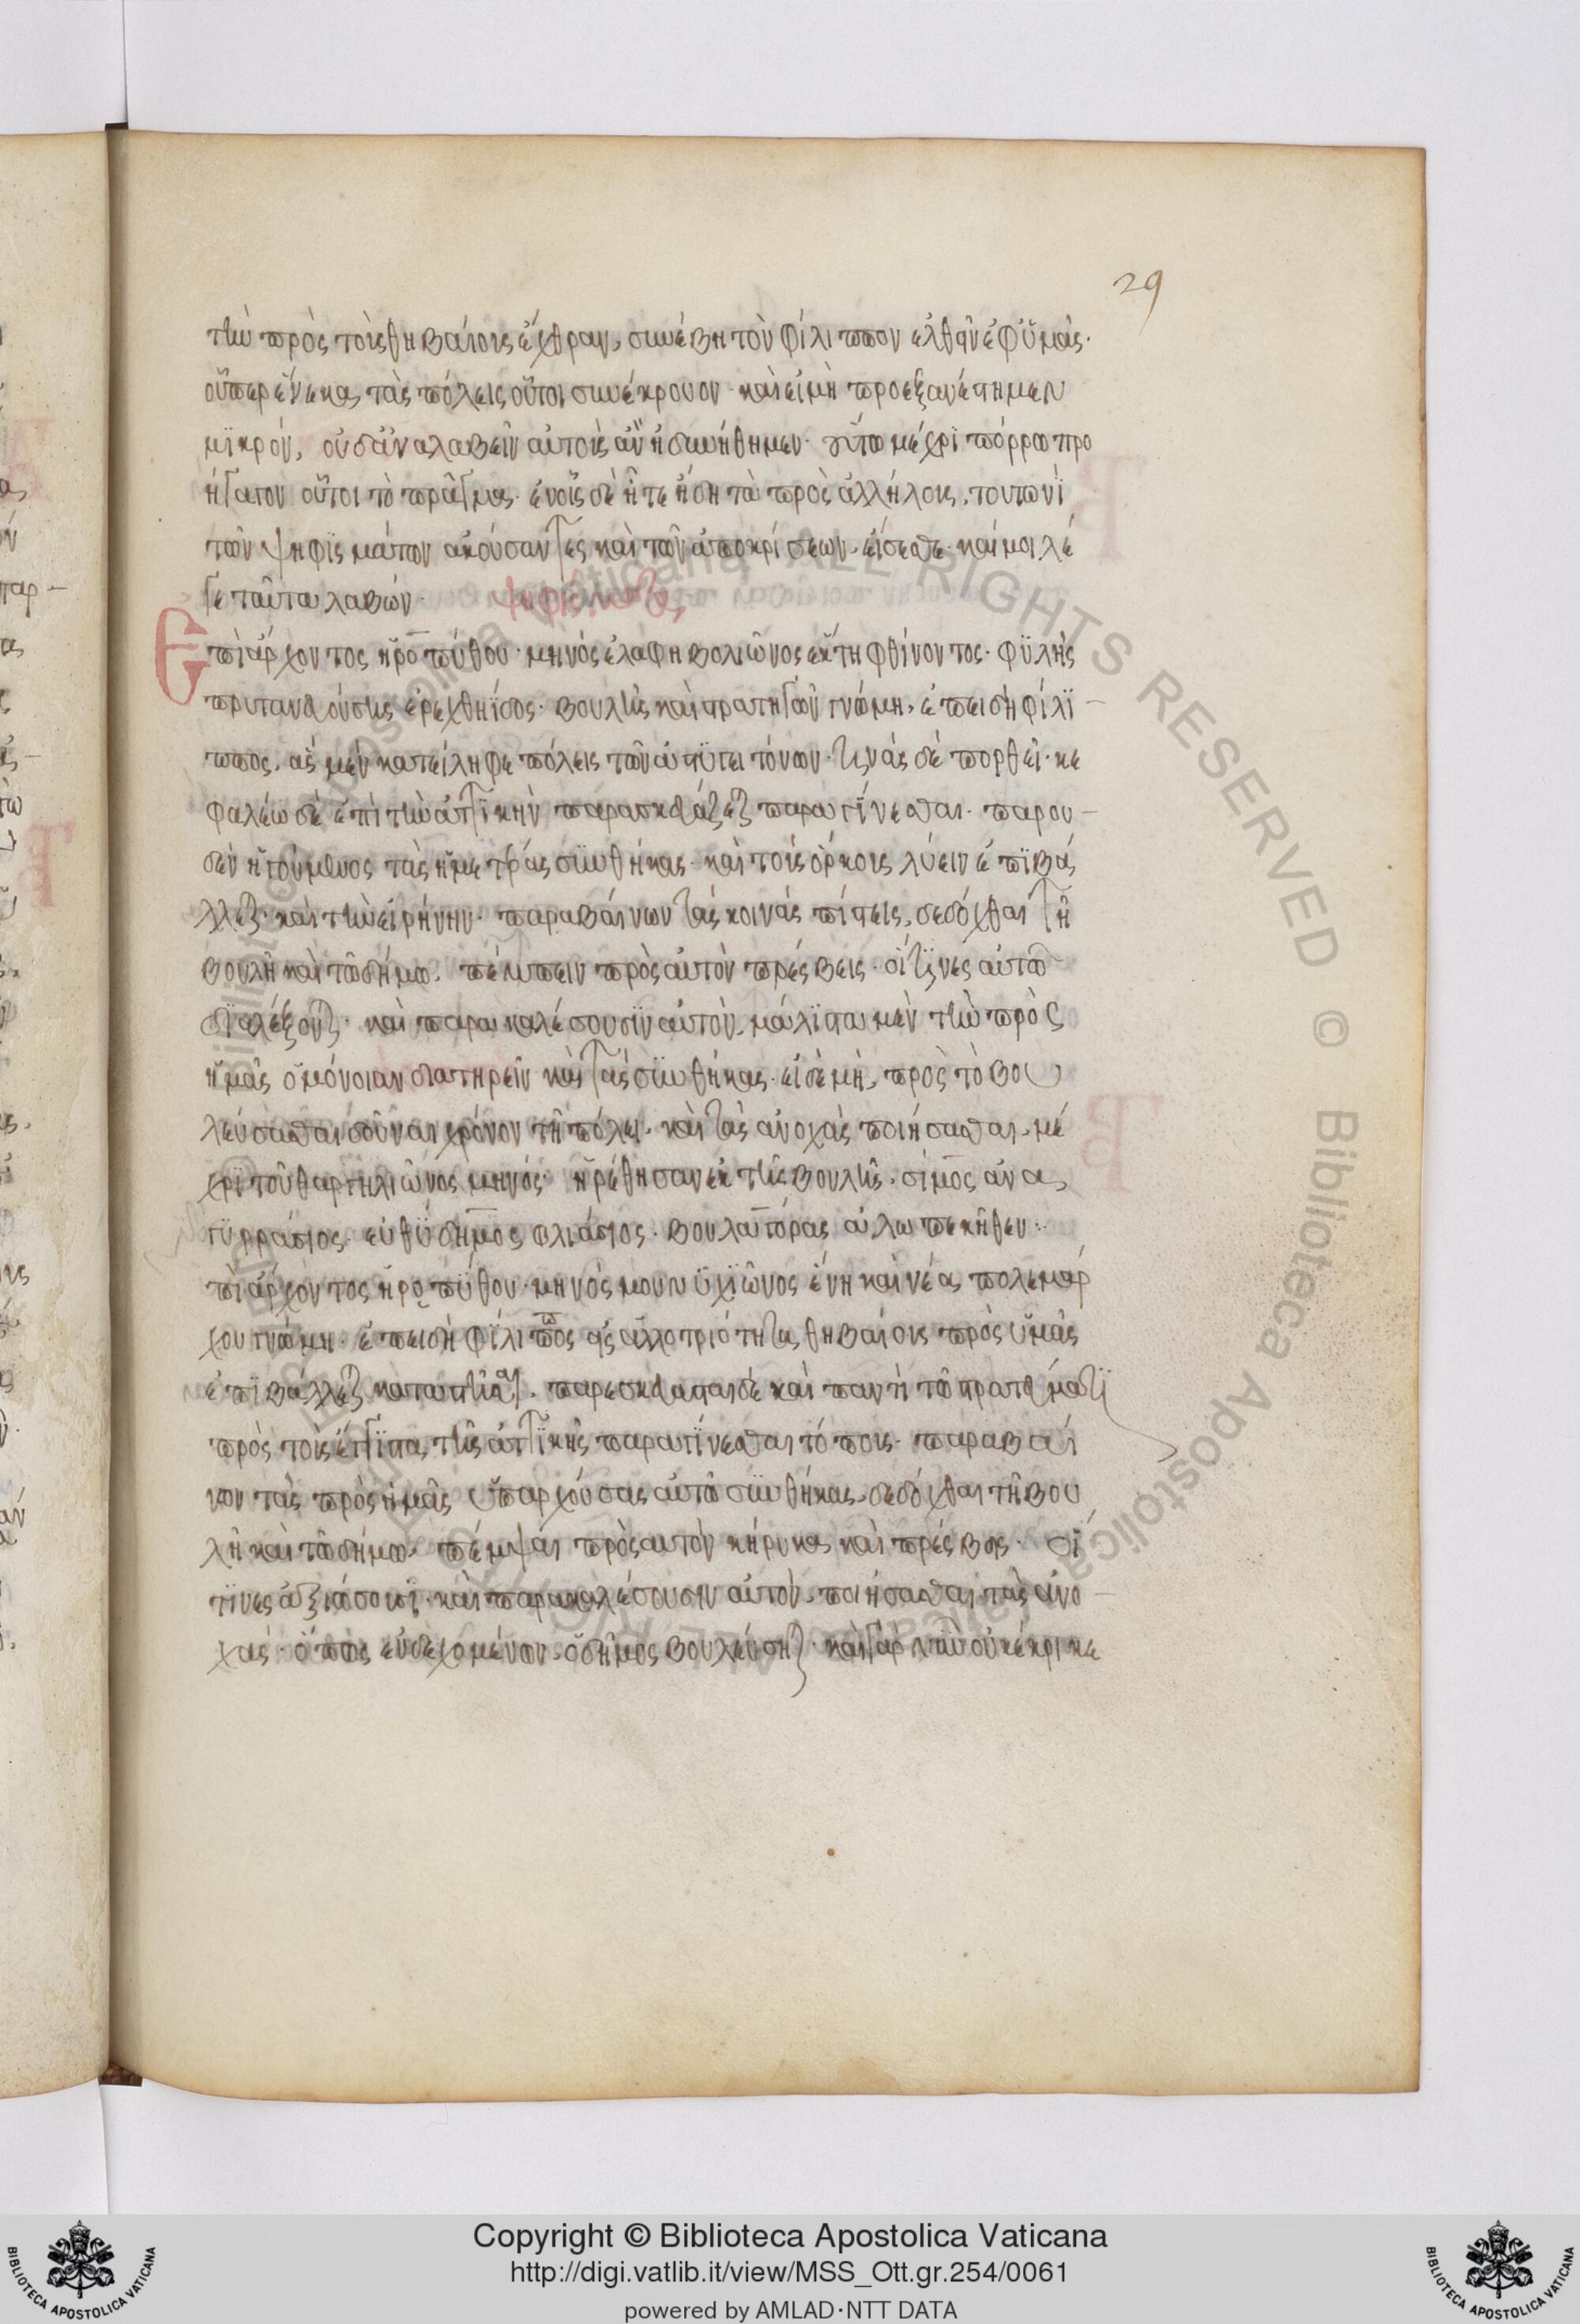 29
τὴν πρὸς τοὺς θηβαίους ἔχθραν, συνέβη τὸν φίλιππον ἐλθεῖν ἐφ' ὑμᾶς·
οὗπερ ἕνεκα τὰς πόλεις οὗτοι συνέκρουον· καὶ εἰ μὴ προεξανέστημεν
μϊκρόν, οὐδ' ἀναλαβεῖν αὑτοὺς ἂν ἠδυνήθημεν· οὕτω μέχρι πόρρω προ
ήγαγον οὗτοι τὸ πρᾶγμα· ἐν οἷς δὲ ἦτε ἤδη τὰ πρὸς ἀλλήλους, τουτωνὶ
τῶν ψηφϊσμάτων ἀκούσαντες καὶ τῶν ἀποκρίσεων, εἴσεσθε· καί μοι λέ
γε ταῦτα λαβών· ψηφίσματα
Ἐπὶ ἄρχοντος ἡροπύθου· μηνὸς ἐλαφηβολιῶνος ἕκτη φθίνοντος· φϋλῆς
πρυτανευούσης ἐρεχθηΐδος· βουλῆς καὶ στρατηγῶν γνώμη, ἐπειδὴ φίλϊ
ππος, ἃς μὲν κατείληφε πόλεις τῶν ἀστϋγειτόνων· τινὰς δὲ πορθεῖ· κε
φαλέω δὲ ἐπὶ τὴν ἀττϊκὴν παρασκευάζεται παραγίνεσθαι· παρ' οὐ
δὲν ἡγούμενος τὰς ἡμετέρας συνθήκας· καὶ τοὺς ὅρκους λύειν ἐπϊβά
λλεται· καὶ τὴν εἰρήνην· παραβαίνων τὰς κοινὰς πίστεις, δεδόχθαι τῆ
βουλῆ καὶ τῶ δήμω, πέμπειν πρὸς αὐτὸν πρέσβεις· οἵτϊνες αὐτῶ
δϊαλέξονται· καὶ παρακαλέσουσϊν αὐτὸν, μάλϊστα μὲν τὴν πρὸς
ἡμᾶς ὁμόνοιαν διατηρεῖν καὶ τὰς συνθήκας· εἰ δὲ μὴ, πρὸς τὸ βου
λεύσασθαι δοῦναι χρόνον τῆ πόλει· καὶ τὰς ἀνοχὰς ποιήσασθαι, μέ
χρϊ τοῦ θαργηλιῶνος μηνός· ἡρέθησαν ἐκ τῆς βουλῆς, σίμος ἀνα
γϋρράσιος· εὐθύδημος φλιάσιος· βουλαγόρας ἀλωπεκῆθεν:
πὶ ἄρχοντος ἡροπύθου· μηνὸς μουνϋχϊῶνος ἕνη καὶ νέα πολεμάρ
χου γνώμη· ἐπειδὴ φίλιππος εἰς ἀλλοτριότητα θηβαίους πρὸς ὑμᾶς
ἐπϊβάλλεται καταστῆσαι· παρεσκεύασται δὲ καὶ παντὶ τῶ στρατεύματϊ
πρὸς τοὺς ἔγγϊστα τῆς ἀττϊκῆς παραγίνεσθαι τόπους· παραβαί
νων τὰς πρὸς ἡμᾶς ὑπαρχούσας αὐτῶ συνθήκας, δεδόχθαι τῆ βου
λῆ καὶ τῶ δήμω, πέμψαι πρὸς αὐτὸν κήρυκα καὶ πρέσβεις· οἵ
τϊνες ἀξιώσουσϊ· καὶ παρακαλέσουσιν αὐτὸν, ποιήσασθαι τὰς ἀνο
χάς· ὅπως ἐνδεχομένως ὁ δῆμος βουλεύσηται· καὶ γὰρ νῦν οὐ κέκρικε
ALL RIGHTS RESERVED © Biblioteca Apostolica Vaticana
BIBLIOTECA APOSTOLICA VATICANA
Copyright © Biblioteca Apostolica Vaticana
http://digi.vatlib.it/view/MSS_Ott.gr.254/0061
powered by AMLAD·NTT DATA
BIBLIOTECA APOSTOLICA VATICANA